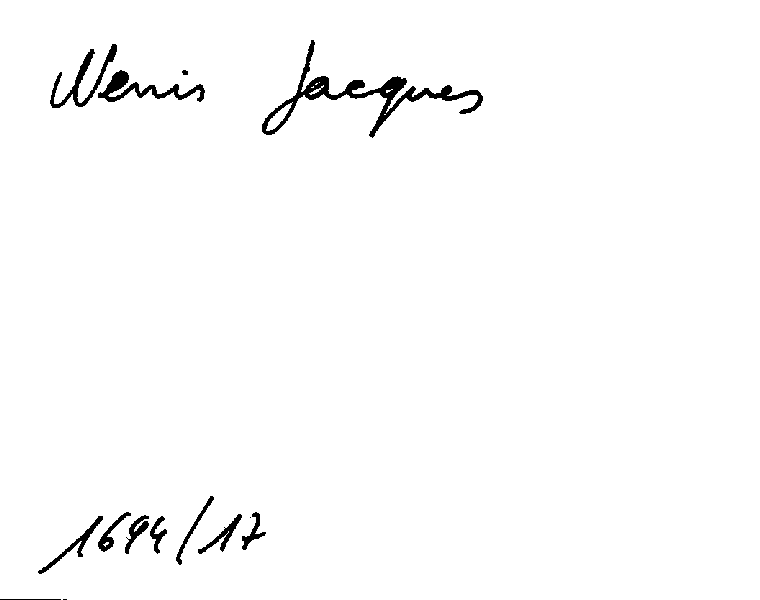 Nenis Jacques
1694/17